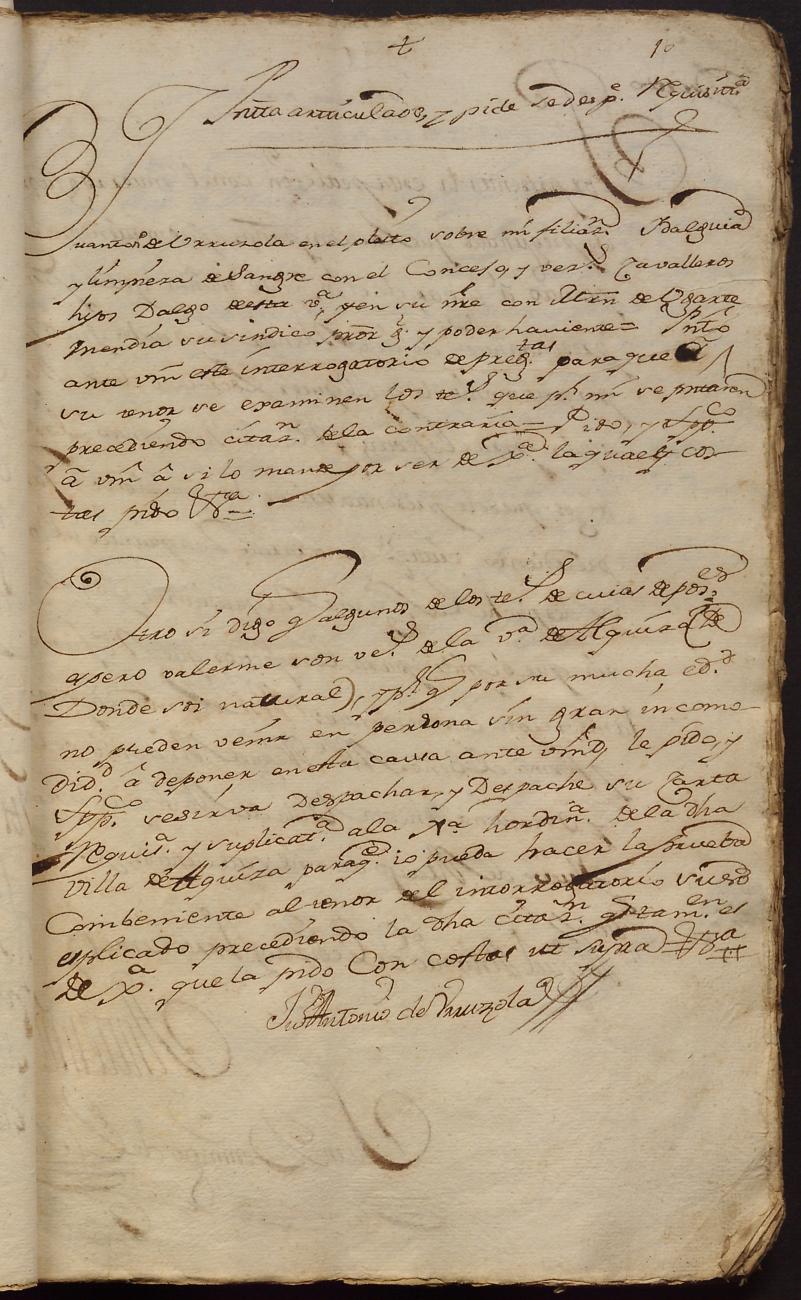 + 10
Pnta articulado, y pide se desp.e Rquisit.a
Juanton.o de Urruzola en el pleito sobre mi filiaz.n Hidalguia
y limpieza de Sangre con el Concejo, y vez.s Cavalleros
hijos Dalgo de esta v.a, y en su nre con Mrn de Ugarte
mendia su sindico pror g.l y poder haviente = Pnto
ante vm este interrogatorio de preg.tas para que a
su tenor se examinen los tt.s que p.r mi se pntaren
precediendo citaz.n de la contraria = Pido, y supp.co
a vm a si lo mande por ser de Jx.a la qual y cos
tas pido &.a
Otro si digo q algunos de los tt.s de cuias depos.es
espero valerme son vez.s de la v.a de Alquiza (de
Donde soi natural), y p.r q por su mucha ed.d
no pueden venir en persona sin gran incomo-
did.d a deponer en esta causa ante vmd, le pido, y
supp.co se sirva Despachar, y Despache su Carta
Rquis.a y suplicat.a a la Jx.a hordin.a de la dha
villa de Alquiza para q. io pueda hacer la prueba
Combeniente al tenor del interrogatorio
esplicado precediendo la dha citaz.n q tam.en es
de Jx.a que la pido Con costas ut supra &.a
Ju Antonio de Urruzola